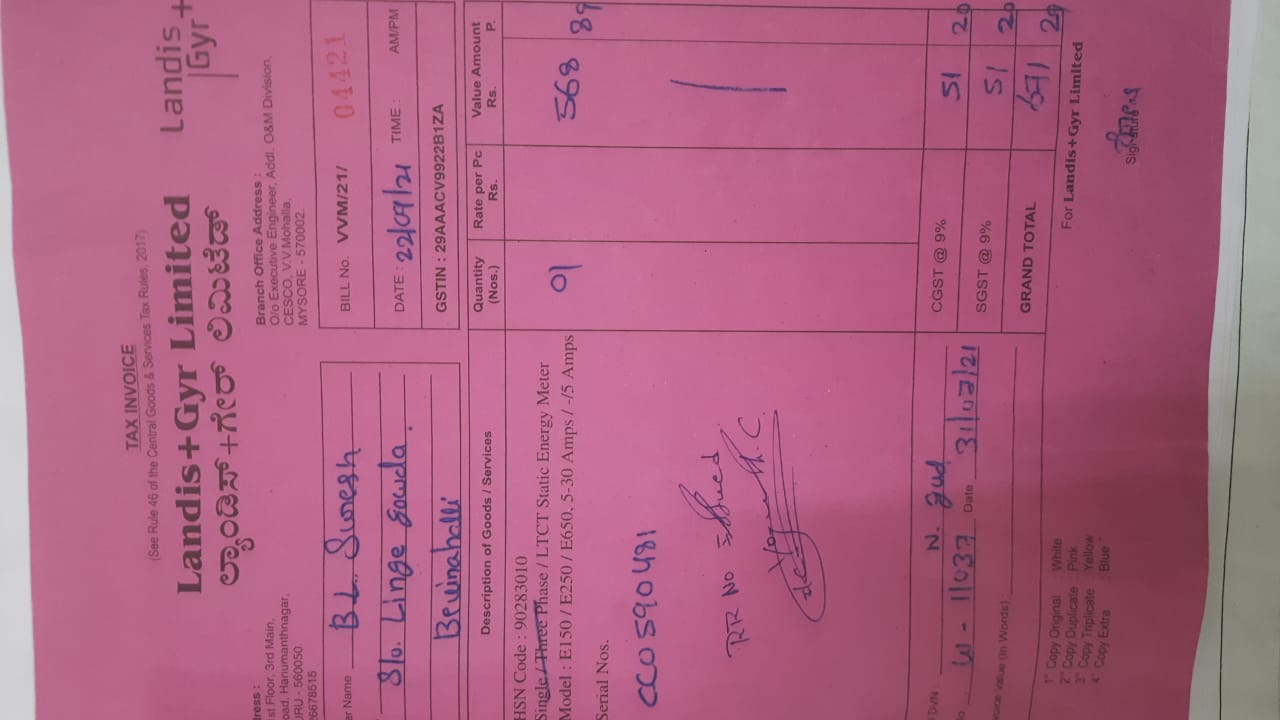 TAX INVOICE
(See Rule 46 of the Central Goods & Services Tax Rules, 2017)
Landis+Gyr Limited
ಲ್ಯಾಂಡಿಸ್+ಗೇರ್ ಲಿಮಿಟೆಡ್
Landis+
Gyr
dress :
st Floor, 3rd Main,
oad, Hanumanthnagar,
URU - 560050.
26678515
Branch Office Address :
O/o Executive Engineer, Addl. O&M Division,
CESCO, V.V.Mohalla,
MYSORE - 570002.
er Name B.L. Suresh
S/o. Linge Gowda.
BILL No. VVM/21/ 04421
DATE : 22/09/21 TIME : AM/PM
GSTIN : 29AAACV9922B1ZA
Description of Goods / Services Quantity (Nos.) Rate per Pc Rs. Value Amount Rs. P.
HSN Code : 90283010
Single / Three Phase / LTCT Static Energy Meter
Model : E150 / E250 / E650, 5-30 Amps / -/5 Amps 01 568 89
Serial Nos.
CC0590481
RR No Issued
DVN : N. Gud CGST @ 9% 51 20
W - 11037 Date 31/07/21 SGST @ 9% 51 20
voice Value (In Words) : GRAND TOTAL 671 29
1° Copy Original : White
2° Copy Duplicate : Pink
3° Copy Triplicate : Yellow
4° Copy Extra : Blue "
For Landis+Gyr Limited
Signature